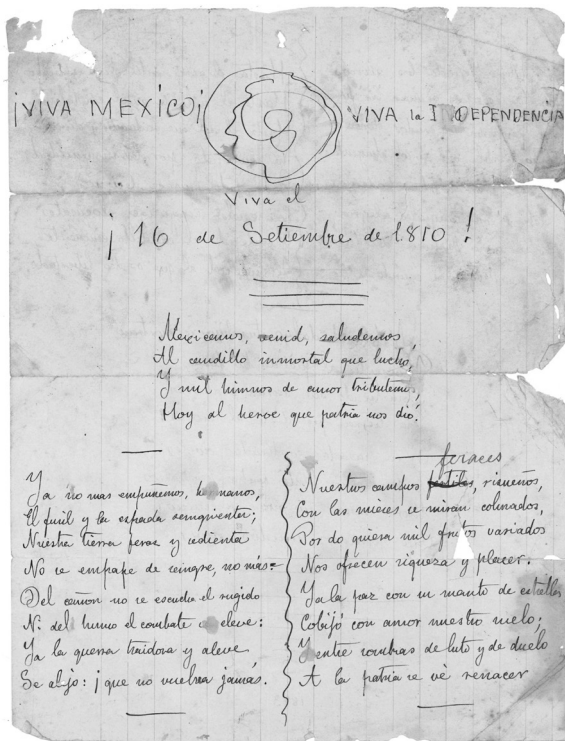 ¡VIVA MEXICO¡
VIVA la I DEPENDENCIA
Viva el
¡ 16 de Setiembre de 1810 !
Mexicanos, venid, saludemos
Al caudillo inmortal que luchó,
Y mil himnos de amor tributemos,
Hoy al heroe que patria nos dió.
Ya no mas empuñemos, hermanos,
El fusil y la espada sangrienta;
Nuestra tierra feraz y sedienta
No se empape de sangre, no más.
Del cañon no se escuche el rugido
Ni del humo el combate se eleve:
Ya la guerra traidora y aleve
Se alejo: ¡que no vuelva jamás.
feraces
Nuestros campos fertiles, risueños,
Con las mieses se miran colmados,
Por do quiera mil frutos variados
Nos ofrecen riqueza y placer.
Ya la paz con su manto de estrellas
Cobijó con amor nuestro suelo;
Y entre sombras de luto y de duelo
A la patria se vé renacer